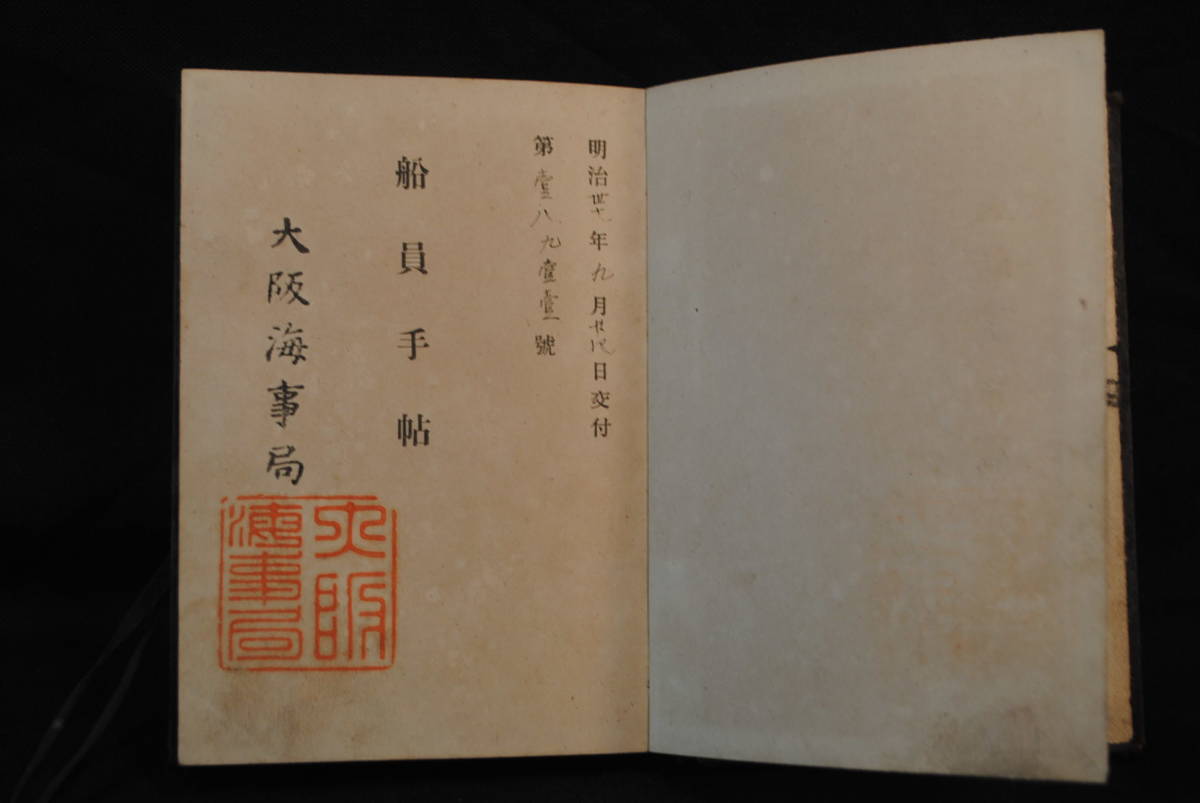 明治年九月日交付
第壹八九壹壹號
船員手帖
大阪海事局
大阪
海事局